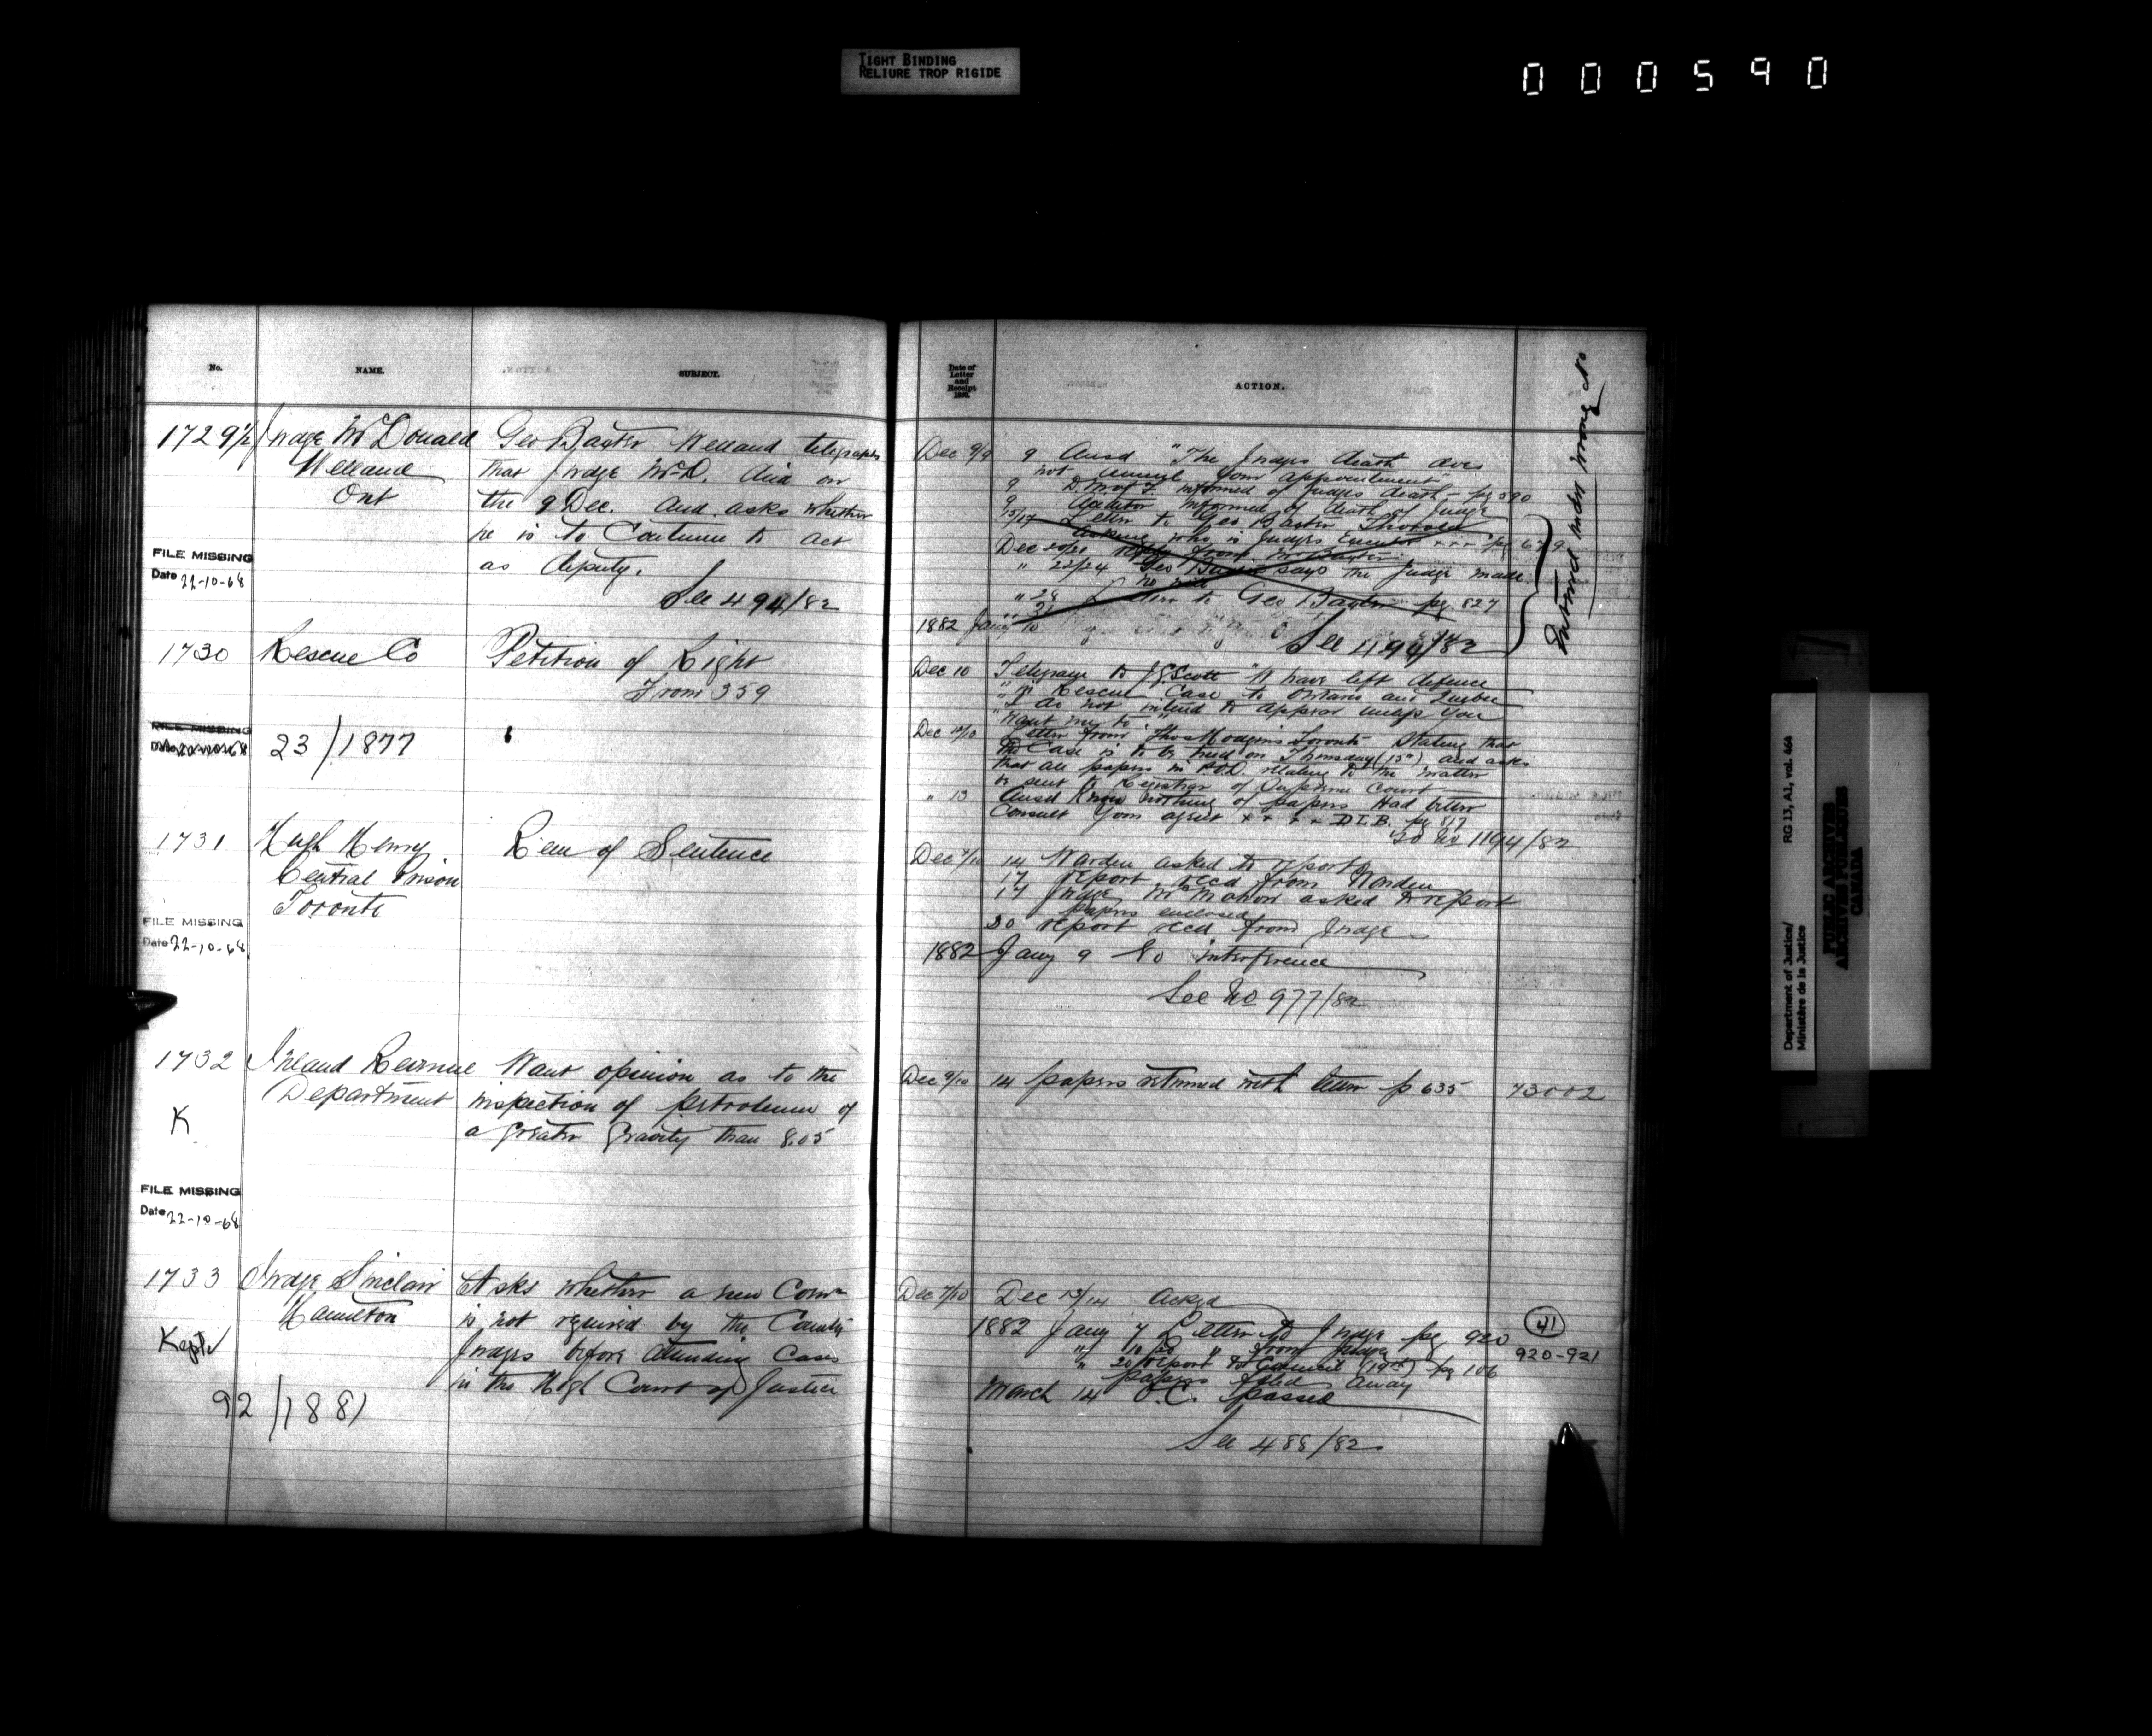 TIGHT BINDING
RELIURE TROP RIGIDE
000590
No.
NAME.
SUBJECT.
1729½
Judge McDonald
Welland
Ont
Geo Baxter Welland telegraphs
that Judge McD. died on
the 9 Dec. and asks whether
he is to Continue to act
as deputy.
See 494/82
FILE MISSING
Date 22-10-68
1730
Rescue Co
Petition of Right
From 359
FILE MISSING
23/1877
1731
Hugh Henry
Central Prison
Toronto
Rem of Sentence
FILE MISSING
Date 22-10-68
1732
Inland Revenue
Department
Want opinion as to the
inspection of petroleum of
a greater gravity than 8.05
K
FILE MISSING
Date 22-10-68
1733
Judge Sinclair
Hamilton
Asks whether a new Comn
is not required by the County
Judges before attending Cases
in the High Court of Justice
Kept
92/1881
Date of
Letter
and
Receipt
ACTION.
Dec 9/9 9 Ansd "The Judges death does
not annul your appointment"
9 D.M. of F. informed of Judges death - pg 590
9 Auditor informed of death of Judge
15/17 Letter to Geo Baxter Thorold
asking who is Judges Executor xxx pg 679
Dec 20/21 reply from Mr Baxter
" 22/24 Geo Baxter says the Judge made
no will
" 28 Letter to Geo Baxter pg 827
1882 Jany 10
See 1194/82
Entered under wrong No
Dec 10 Telegram to J.S. Scott "W have left defence
" in Rescue Case to Ontario and Quebec
"I do not intend to appear unless you
"want me to"
Dec 10/10 Letter from Thos Hodgins Toronto stating that
the Case is to be tried on Thursday (15th) and asks
that all papers in P.O.D. relating to the matter
be sent to Registrar of Supreme Court
" 13 Ansd Know nothing of papers Had better
Consult your agent x x x x pg 617
To No 1194/82
Dec 7/10 14 Warden asked to report
17 report recd from Warden
17 Judge McMahon asked to report
papers enclosed
20 report recd from Judge
1882 Jany 9 No interference
See No 977/82
Dec 9/10 14 papers returned with letter p 635 73002
Dec 7/10 Dec 13/14 Ackgd
1882 Jany 7 Letter to Judge pg 920
" 10/20 " from Judge
" 20 report to Council (19th) pg 106
papers filed away
March 14 O.C. passed
See 488/82
41
920-921
Department of Justice/
Ministère de la Justice
RG 13, A1, vol. 464
PUBLIC ARCHIVES
ARCHIVES PUBLIQUES
CANADA